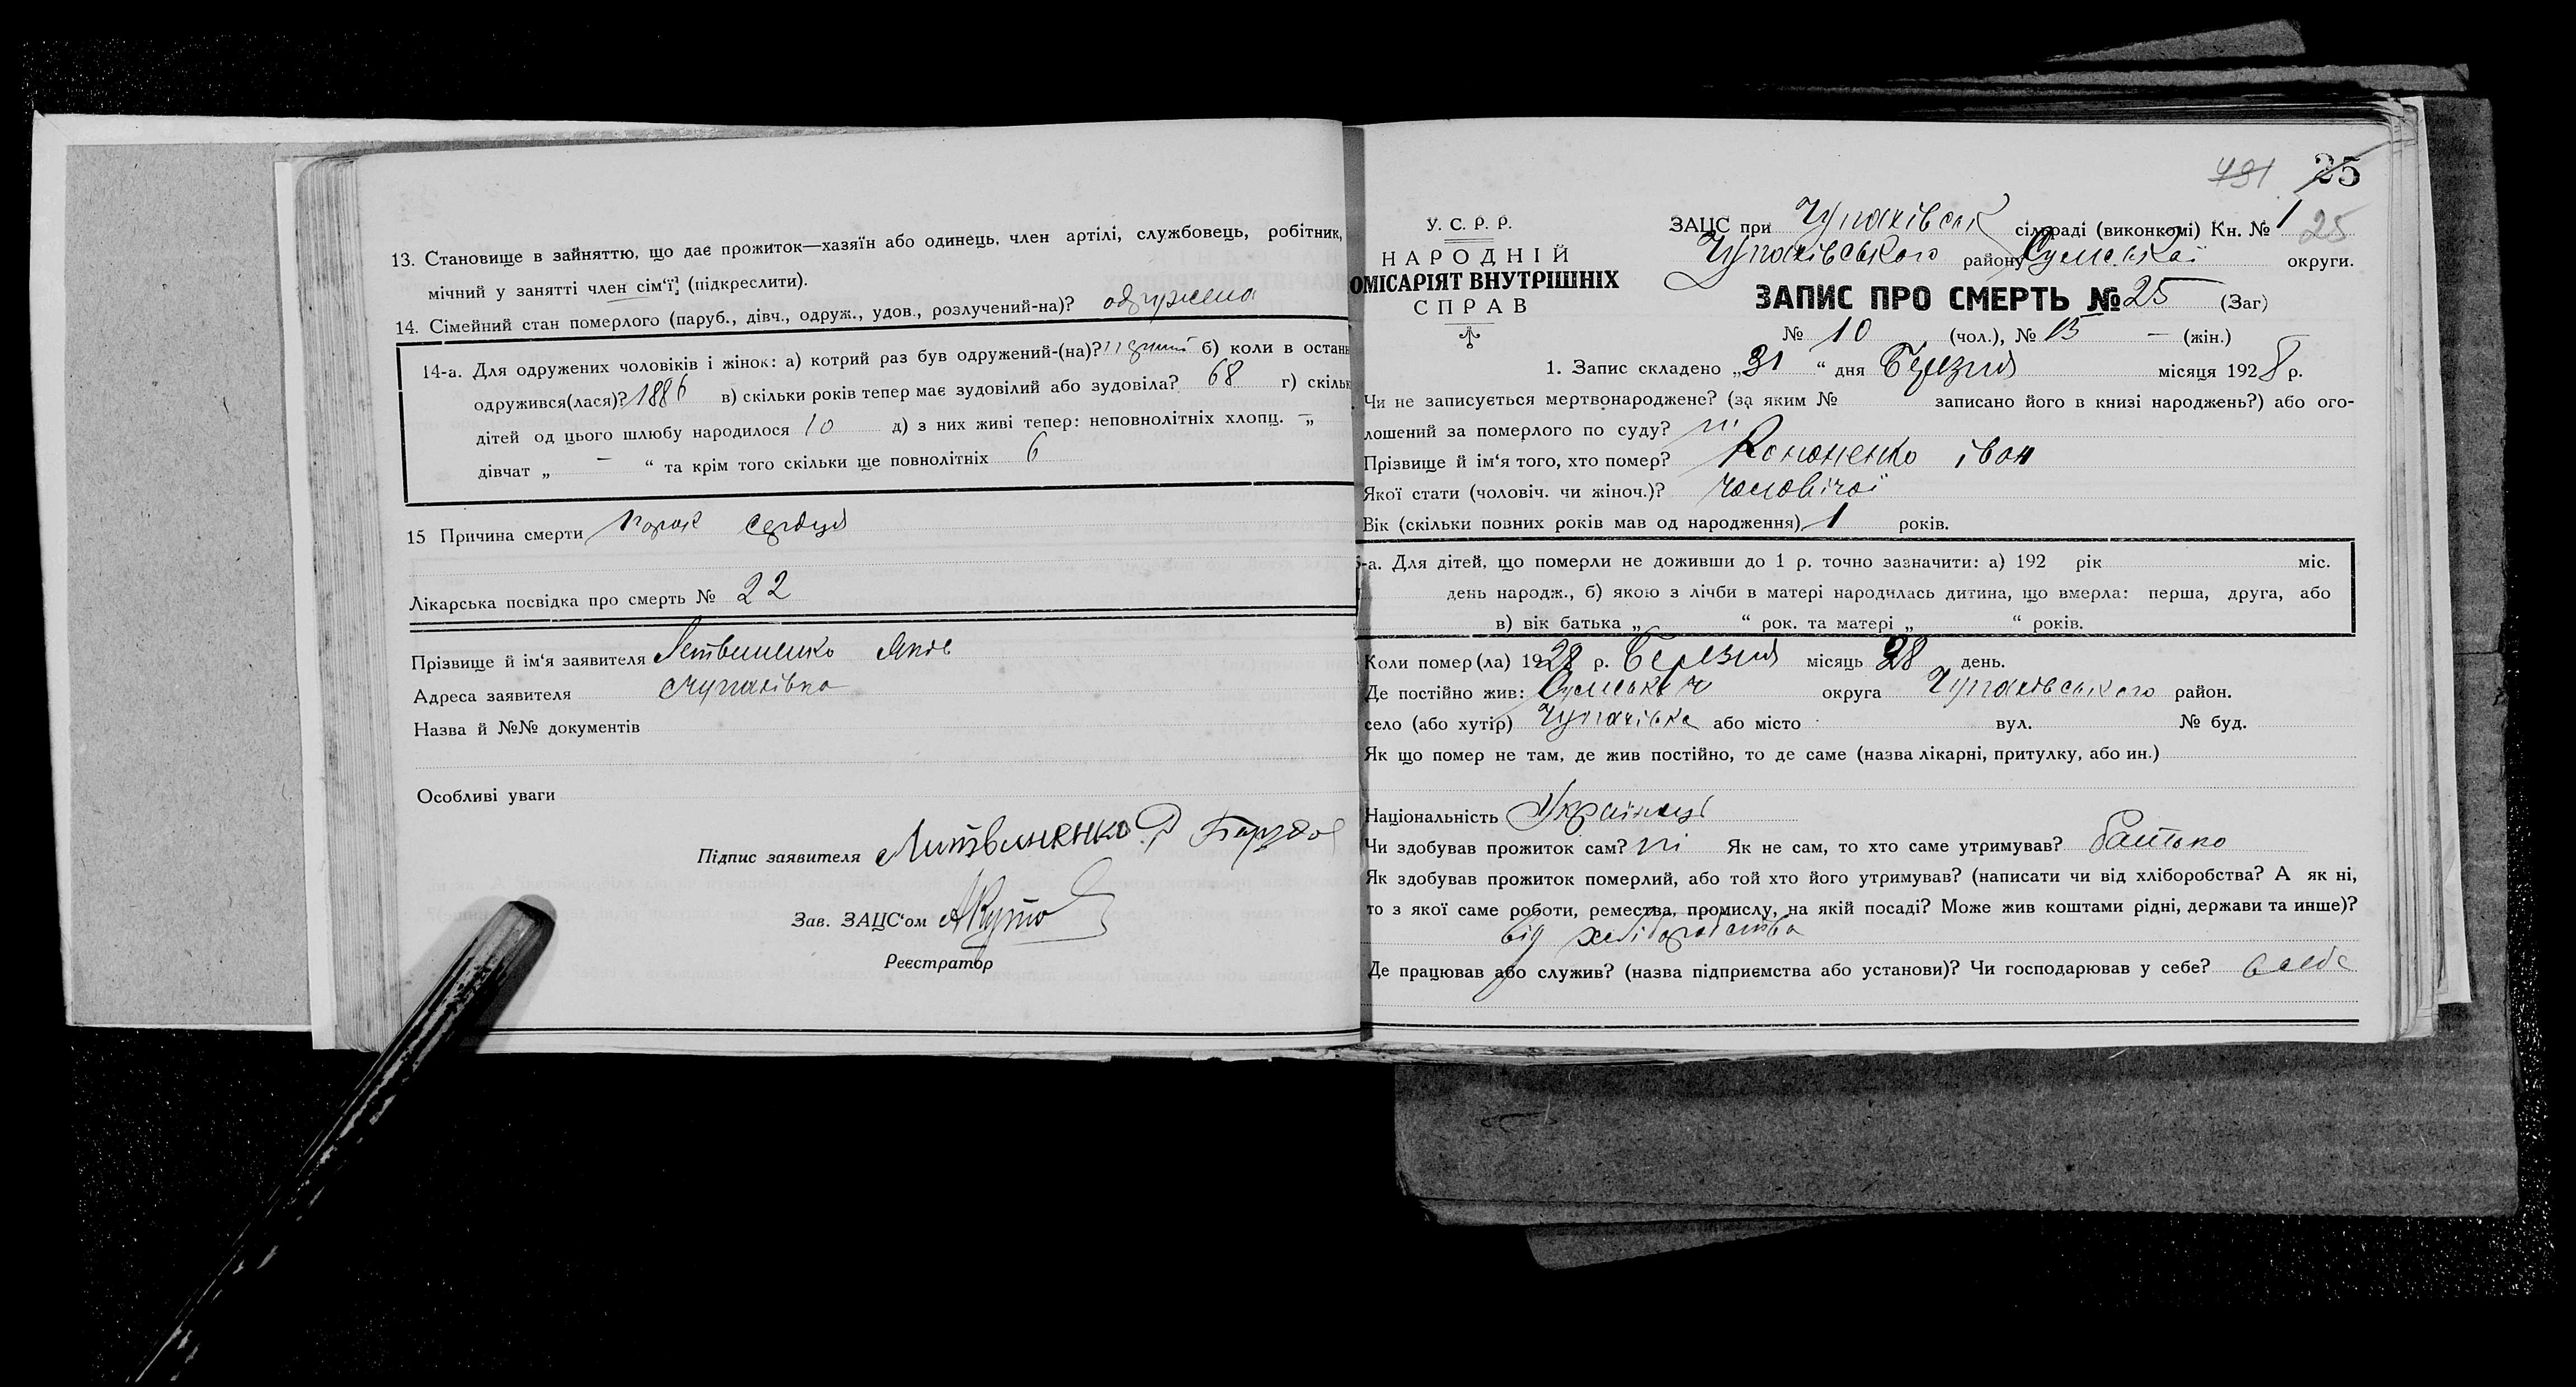 13. Становище в зайняттю, що дає прожиток—хазяїн або одинець, член артілі, службовець, робітник,
мічний у занятті член сім'ї, (підкреслити).
14. Сімейний стан померлого (паруб., дівч., одруж., удов., розлучений-на)? одружена
14-а. Для одружених чоловіків і жінок: а) котрий раз був одружений-(на)? б) коли в останн
одружився(лася)? 1886 в) скільки років тепер має зудовілий або зудовіла? 68 г) скільк
дітей од цього шлюбу народилося 10 д) з них живі тепер: неповнолітніх хлопц. — „
дівчат „ — “ та крім того скільки ще повнолітніх 6
15 Причина смерти Порок сердця
Лікарська посвідка про смерть № 22
Прізвище й ім'я заявителя Литвиненко Яков
Адреса заявителя Чупахівка
Назва й №№ документів
Особливі уваги
Підпис заявителя Литвиненко
Зав. ЗАЦС'ом
Реєстратор
491 25
У. С. Р. Р.
НАРОДНІЙ
ОМІСАРІЯТ ВНУТРІШНІХ
СПРАВ
ЗАЦС при Чупахівськ сільраді (виконкомі) Кн. № 1 25
Чупахівського району Сумської округи.
ЗАПИС ПРО СМЕРТЬ № 25 (Заг)
№ 10 (чол.), № 15 — (жін.)
1. Запис складено „31 “ дня Березня місяця 1928 р.
Чи не записується мертвонароджене? (за яким № записано його в книзі народжень?) або ого-
лошений за померлого по суду? ні
Прізвище й ім'я того, хто помер? Кононенко іван
Якої стати (чоловіч. чи жіноч.)? чоловічої
Вік (скільки повних років мав од народження) 1 років.
-а. Для дітей, що померли не доживши до 1 р. точно зазначити: а) 192 рік міс.
день народж., б) якою з лічби в матері народилась дитина, що вмерла: перша, друга, або
в) вік батька „ “ рок. та матері „ “ років.
Коли помер(ла) 1928 р. Березня місяць 28 день.
Де постійно жив: округа Чупахівського район.
село (або хутір) Чупахівка або місто вул. № буд.
Як що помер не там, де жив постійно, то де саме (назва лікарні, притулку, або ин.)
Національність Українец
Чи здобував прожиток сам? ні Як не сам, то хто саме утримував? батько
Як здобував прожиток померлий, або той хто його утримував? (написати чи від хліборобства? А як ні,
то з якої саме роботи, ремества, промислу, на якій посаді? Може жив коштами рідні, держави та инше)?
від хліборобства
Де працював або служив? (назва підприємства або установи)? Чи господарював у себе? в себе